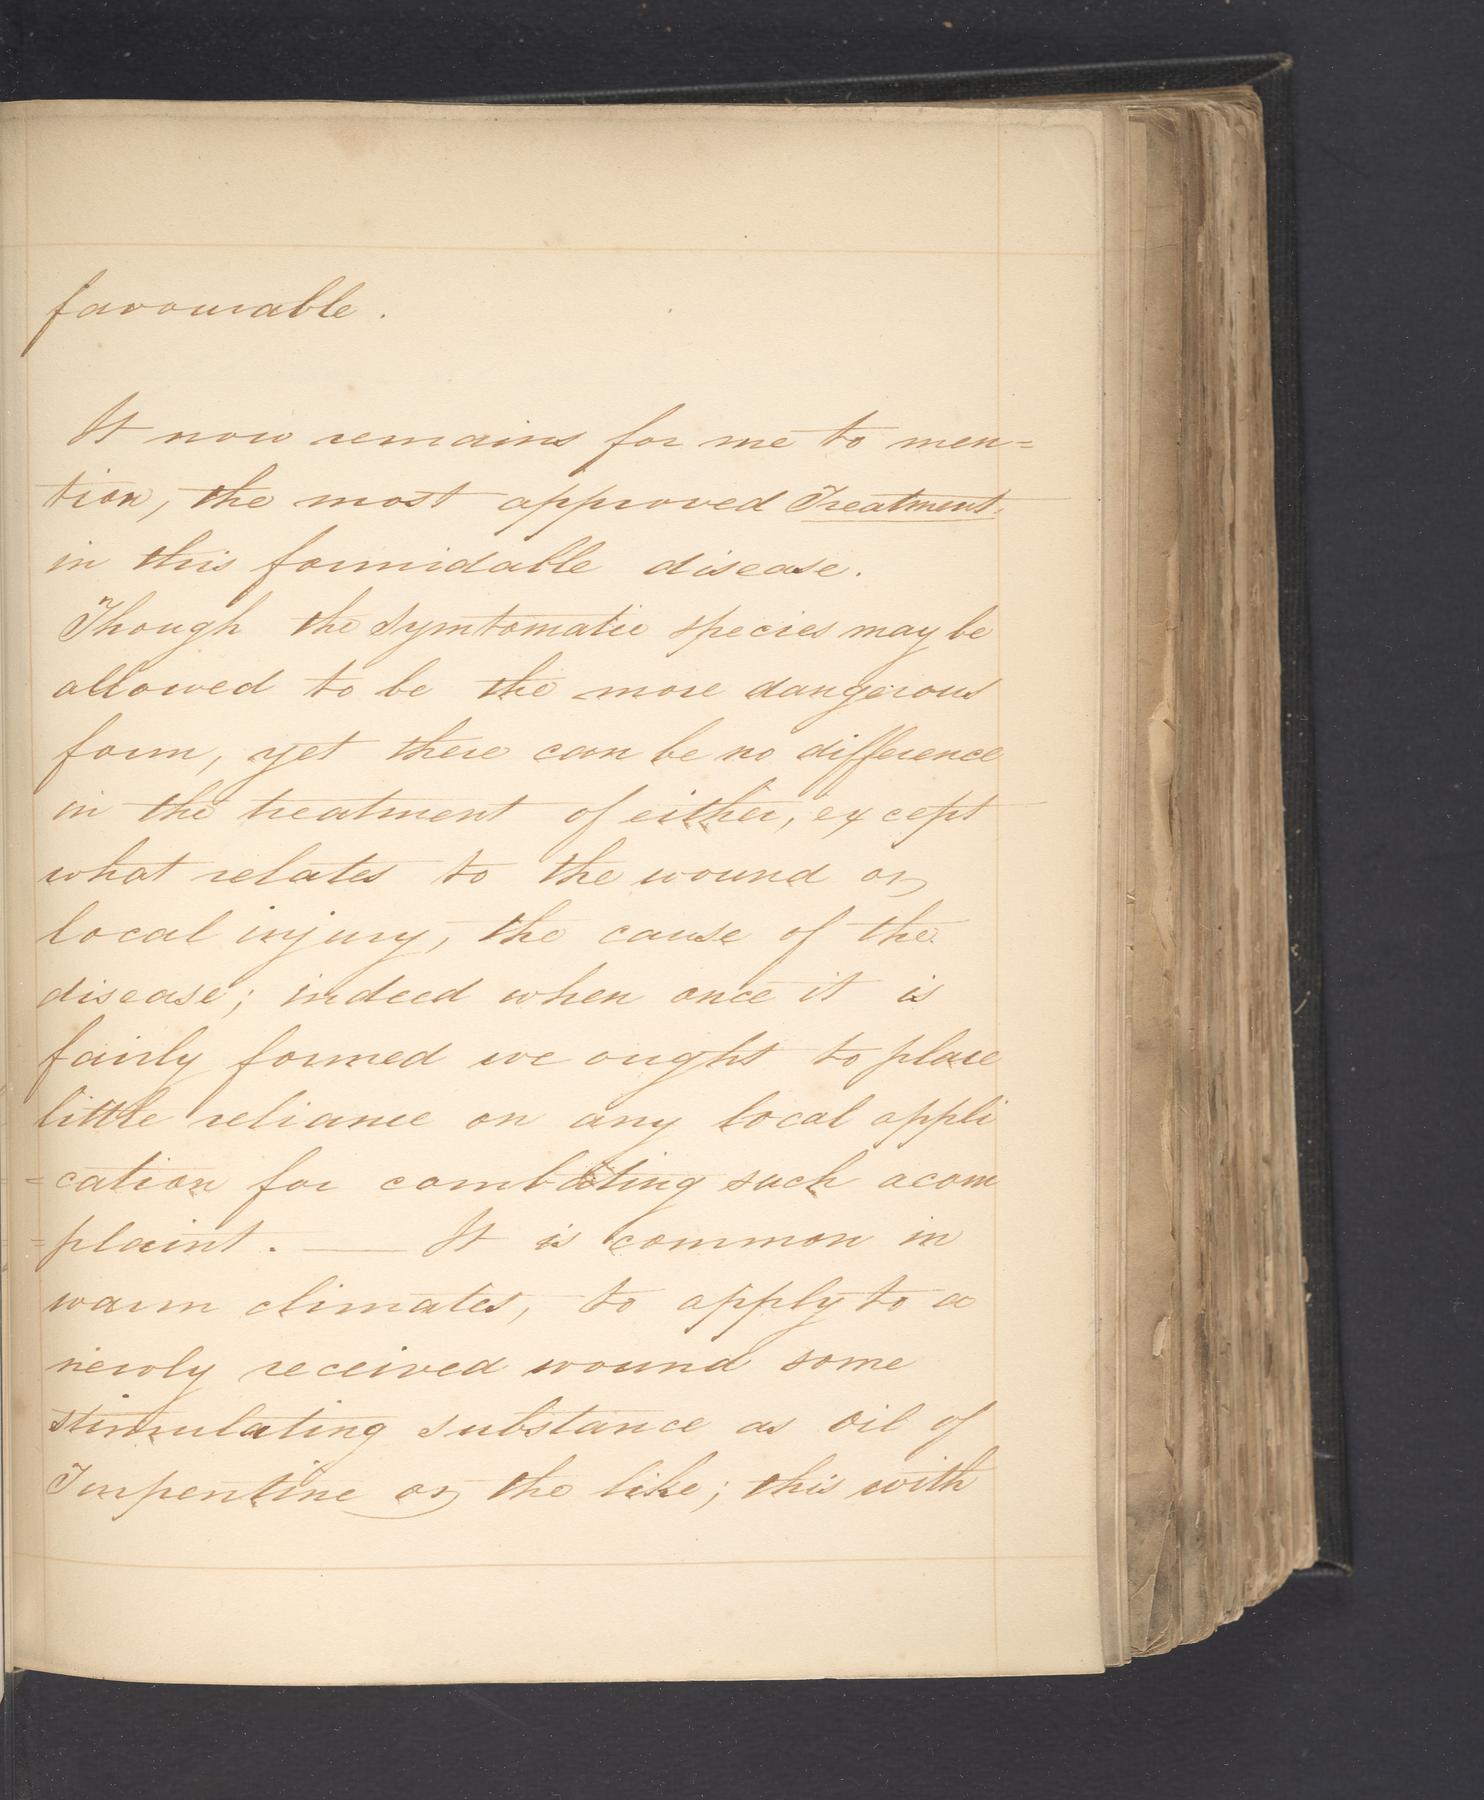 favourable.
It now remains for me to men=
tion, the most approved Treatment,
in this formidable disease.
Though the Symtomatic species may be
allowed to be the more dangerous
form, yet there can be no difference
in the treatment of either, except
what relates to the wound or
local injury, the cause of the
disease; indeed when once it is
fairly formed we ought to place
little reliance on any local appli
=cation for combating such acom
=plaint. — It is common in
warm climates, to apply to a
newly received wound some
stimulating substance as Oil of
Turpentine or the like; this with